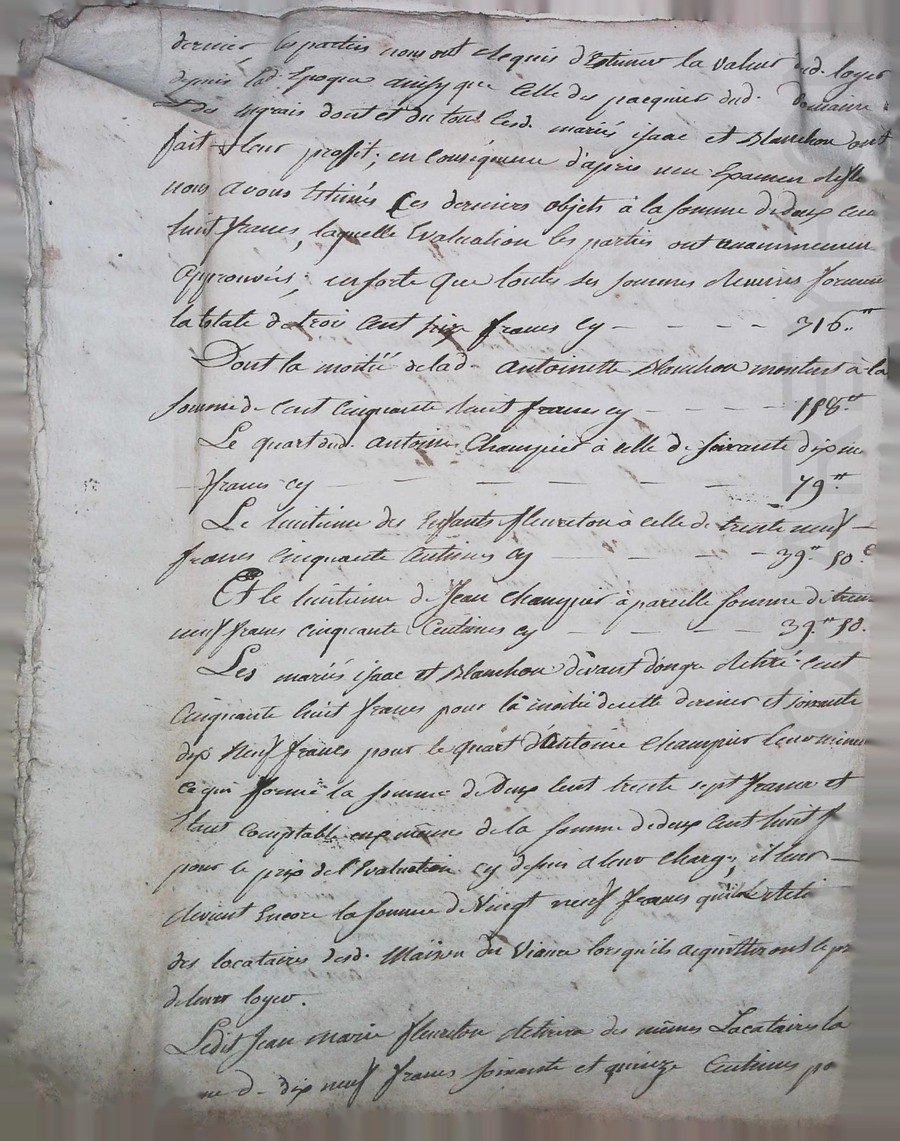 dernier, les parties nous ont requis d'Estimer la valeur dud. loyer
depuis lad. Epoque ainsy que celle des pacquier dud. Domaine
des engrais dont et du tout lesd. mariés isaac et Blanchon ont
fait leur proffit; en conséquence d'après un Examen
nous avons Estimés Ces derniers objets à la somme de deux cen
huit francs, laquelle Evaluation les parties ont unanimement
Approuvés; ensorte que toutes ses sommes réunies forme
la totale de trois Cent seize francs cy - - - - 316.."
Dont la moitié delad. Antoinette Blanchon montent à la
somme de Cent Cinquante huit francs cy - - - - 158."
Le quart dud. Antoine Champier à celle de soixante dix neu
- francs cy - - - - - - 79."
Le huitieme des Enfants fleureton à celle de trente neuf -
francs Cinquante Centimes cy - - - - 39." 50.c
Et le huitieme de Jean Champier à pareille somme de trente
neuf francs cinquante Centimes cy - - - - 39." 50.
Les mariés isaac et Blanchon devant donque Cent
Cinquante huit francs pour la moitié de cette derniere et soixante
dix Neuf francs pour le quart d'Antoine Champier leur mineur
Ce qui forme la somme de Deux Cent trente sept francs et
Etant Comptable eux mêmes de la somme de deux Cent huit f
pour le prix de l'Evaluation cy dessus a leur Charge, il leur -
devient Encore la somme de Vingt neuf francs qu'ils
des locataires desd. Maison de Vienne lorsqu'ils acquitteront le pr
de leur loyer.
Ledit Jean marie fleureton retirera des mêmes Locataires la
me de dix neuf francs soixante et quinze Centimes po